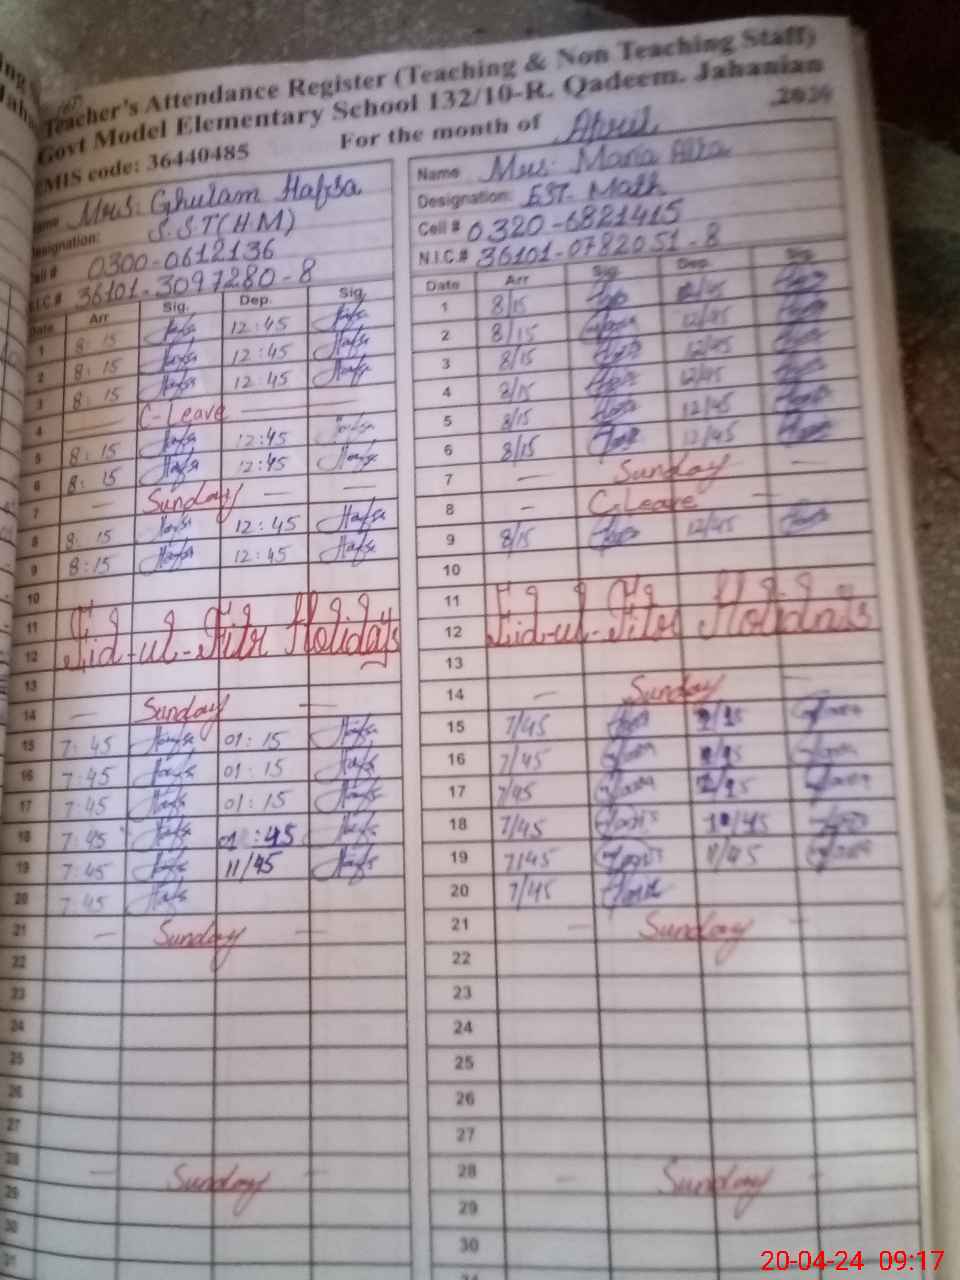 Teacher's Attendance Register (Teaching & Non Teaching Staff)
Govt Model Elementary School 132/10-R. Qadeem. Jahanian
EMIS code: 36440485 For the month of April .2024
Name Mrs. Ghulam Hafsa
Designation: S.ST(H.M)
Cell # 0300-0612136
N.I.C.# 36101-3097280-8
Date Arr Sig. Dep. Sig.
1 8:15 Hafsa 12:45 Hafsa
2 8:15 Hafsa 12:45 Hafsa
3 8:15 Hafsa 12:45 Hafsa
4 C-Leave
5 8:15 Hafsa 12:45 Hafsa
6 8:15 Hafsa 12:45 Hafsa
7 — Sunday — —
8 8:15 Hafsa 12:45 Hafsa
9 8:15 Hafsa 12:45 Hafsa
10
11
12 Eid-ul-Fitr Holidays
13
14 — Sunday —
15 7:45 Hafsa 01:15 Hafsa
16 7:45 Hafsa 01:15 Hafsa
17 7:45 Hafsa 01:15 Hafsa
18 7:45 Hafsa :45 Hafsa
19 7:45 Hafsa 11/45 Hafsa
20 7:45 Hafsa
21 — Sunday —
22
23
24
25
26
27
28 — Sunday —
29
30
31
Name Mrs. Maria
Designation: EST. Math
Cell # 0320-6821415
N.I.C.# 36101-0782051-8
Date Arr Sig. Dep. Sig.
1 8/15 12/45
2 8/15 12/45
3 8/15 12/45
4 8/15 12/45
5 8/15 12/45
6 8/15 12/45
7 — Sunday —
8 — C.Leave —
9 8/15 12/45
10
11
12 Eid-ul-Fitr Holidays
13
14 — Sunday —
15 7/45
16 7/45
17 7/45
18 7/45 10/45
19 7/45 11/45
20 7/45
21 — Sunday —
22
23
24
25
26
27
28 — Sunday —
29
30
20-04-24 09:17